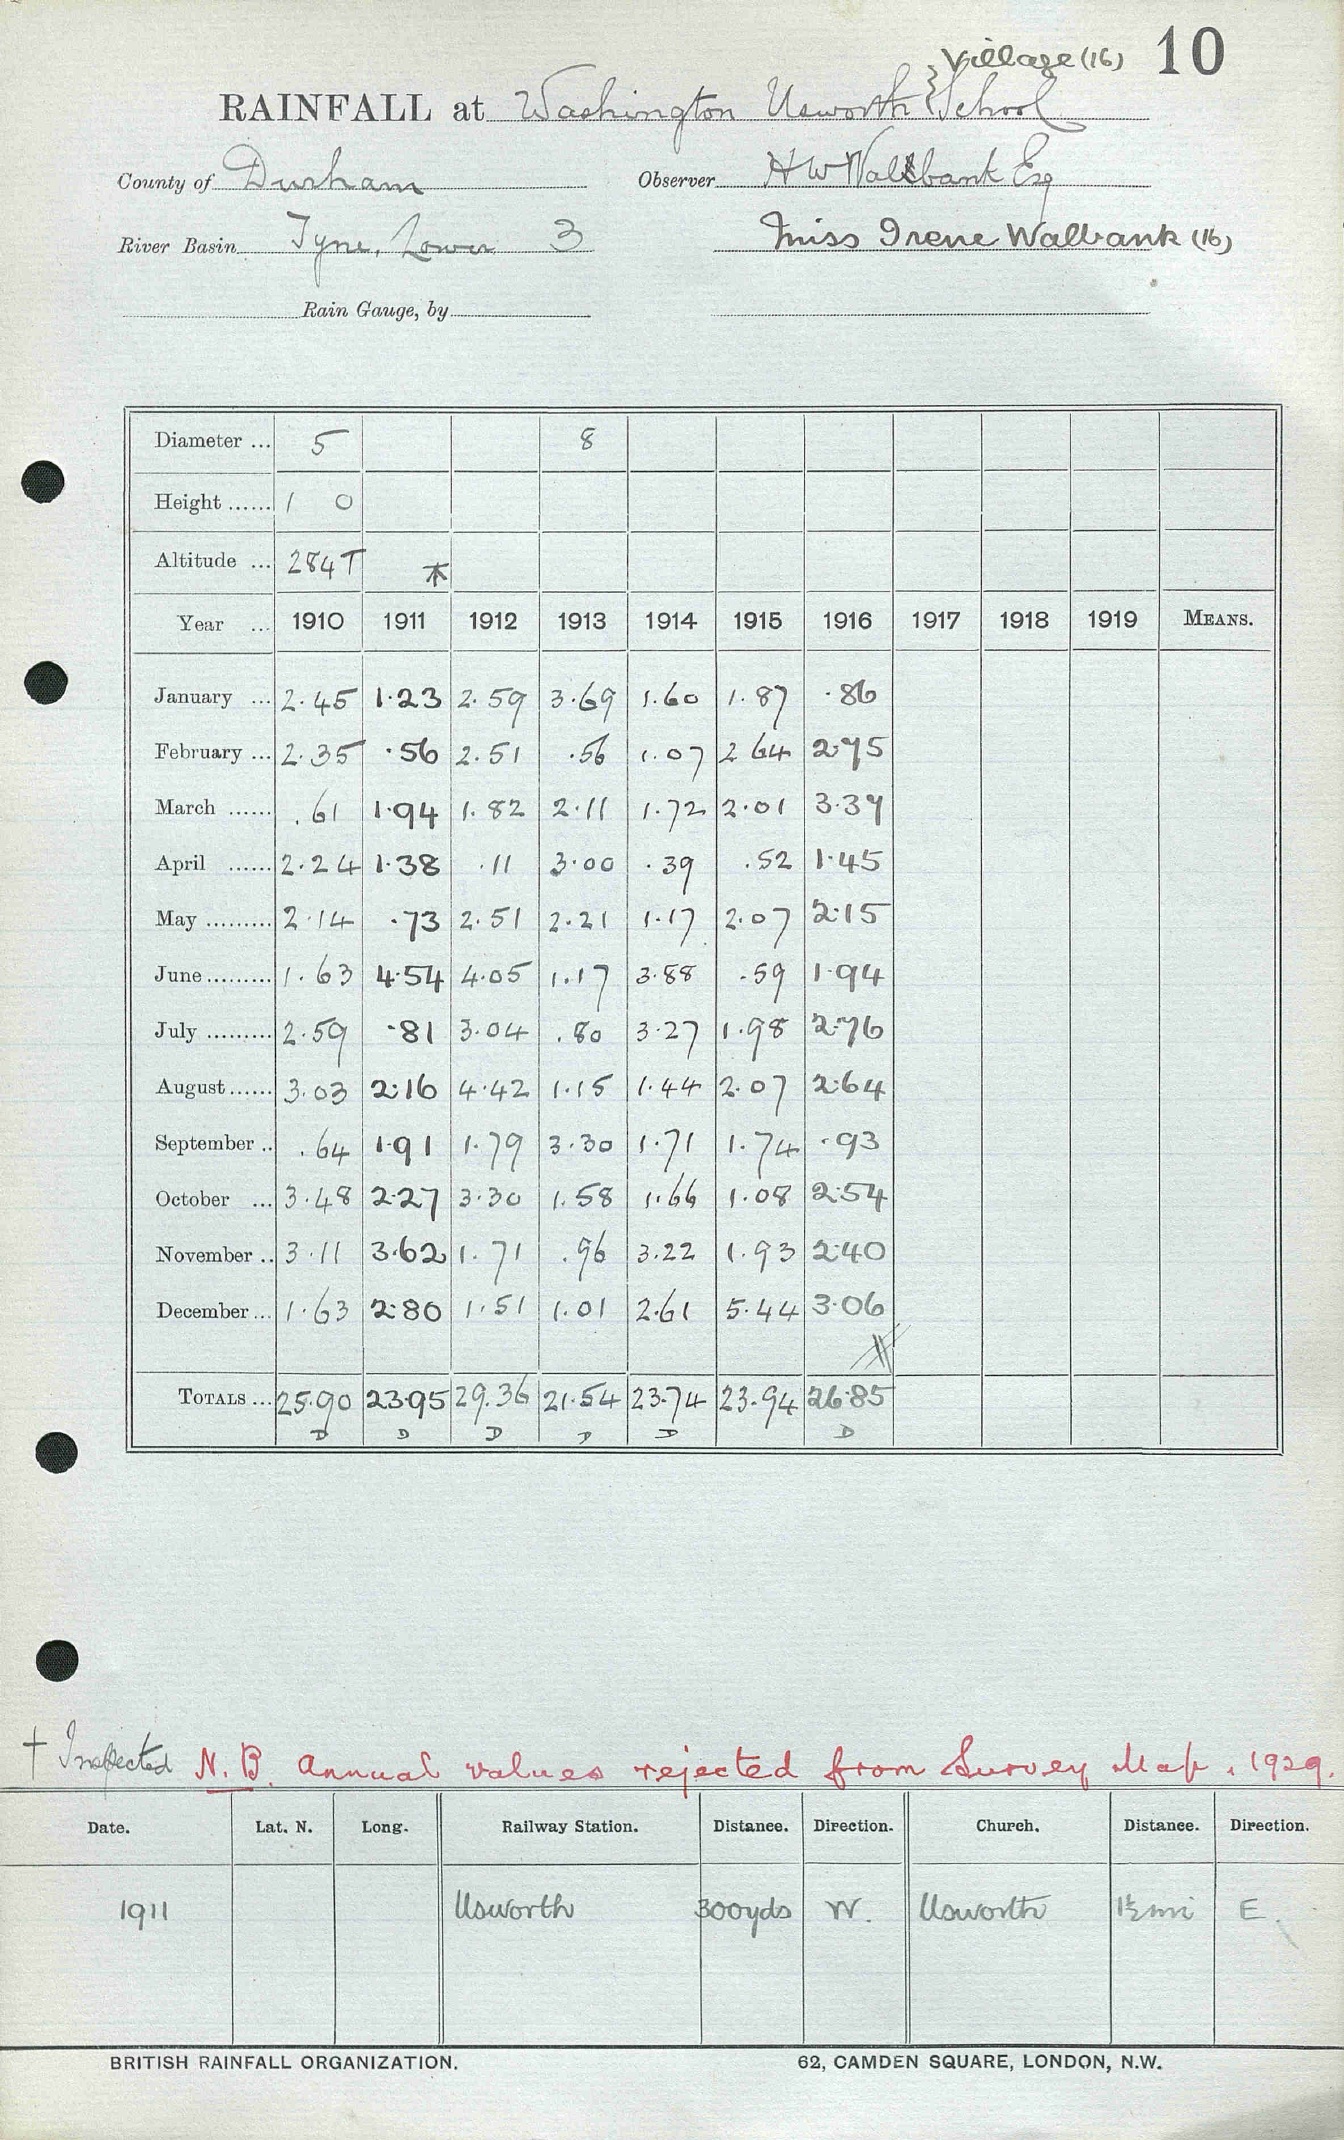 Village (16) 10
RAINFALL at Washington Usworth School
County of Durham Observer H W Wallbank Esq
River Basin Tyne, Lower 3 Miss Irene Wallbank (16)
Rain Gauge, by
Diameter ... 5 8
Height ...... 1 0
Altitude ... 284T *
Year ... 1910 1911 1912 1913 1914 1915 1916 1917 1918 1919 MEANS.
January ... 2.45 1.23 2.59 3.69 1.60 1.87 .86
February ... 2.35 .56 2.51 .56 1.07 2 64 2.75
March ...... .61 1.94 1.82 2.11 1.72 2.01 3.39
April ...... 2.24 1.38 .11 3.00 .39 .52 1.45
May ......... 2.14 .73 2.51 2.21 1.17 2.07 2.15
June ......... 1.63 4.54 4.05 1.17 3.88 .59 1.94
July ......... 2.59 .81 3.04 .80 3.27 1.98 2.76
August ...... 3.03 2.16 4.42 1.15 1.44 2.07 2.64
September .. .64 1.91 1.79 3.30 1.71 1.74 .93
October ... 3.48 2.27 3.30 1.58 1.66 1.08 2.54
November .. 3.11 3.62 1.71 .96 3.22 1.93 2.40
December ... 1.63 2.80 1.51 1.01 2.61 5.44 3.06
TOTALS ... 25.90 23.95 29.36 21.54 23.74 23.94 26.85
D D D D D D
† Inspected N.B. Annual values rejected from Survey Map. 1929.
Date. Lat. N. Long. Railway Station. Distance. Direction. Church. Distance. Direction.
1911 Usworth 300yds W. Usworth 1½mi E.
BRITISH RAINFALL ORGANIZATION. 62, CAMDEN SQUARE, LONDON, N.W.